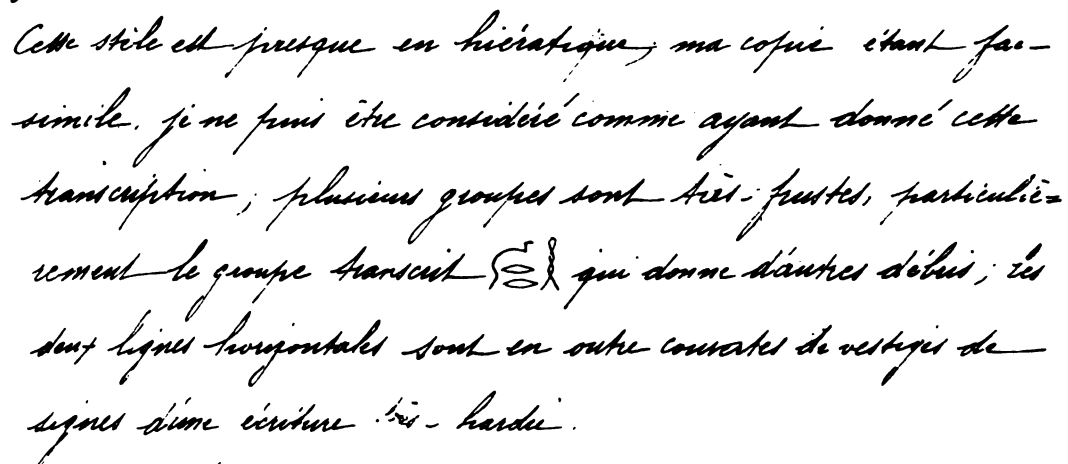 Cette stèle est presque en hiératique, ma copie étant fac-
simile. je ne puis être considéré comme ayant donné cette
transcription ; plusieurs groupes sont très-frustes, particuliè=
rement le groupe transcrit qui donne d'autres débris ; les
deux lignes horizontales sont en outre couvertes de vestiges de
signes d'une écriture très-hardie.